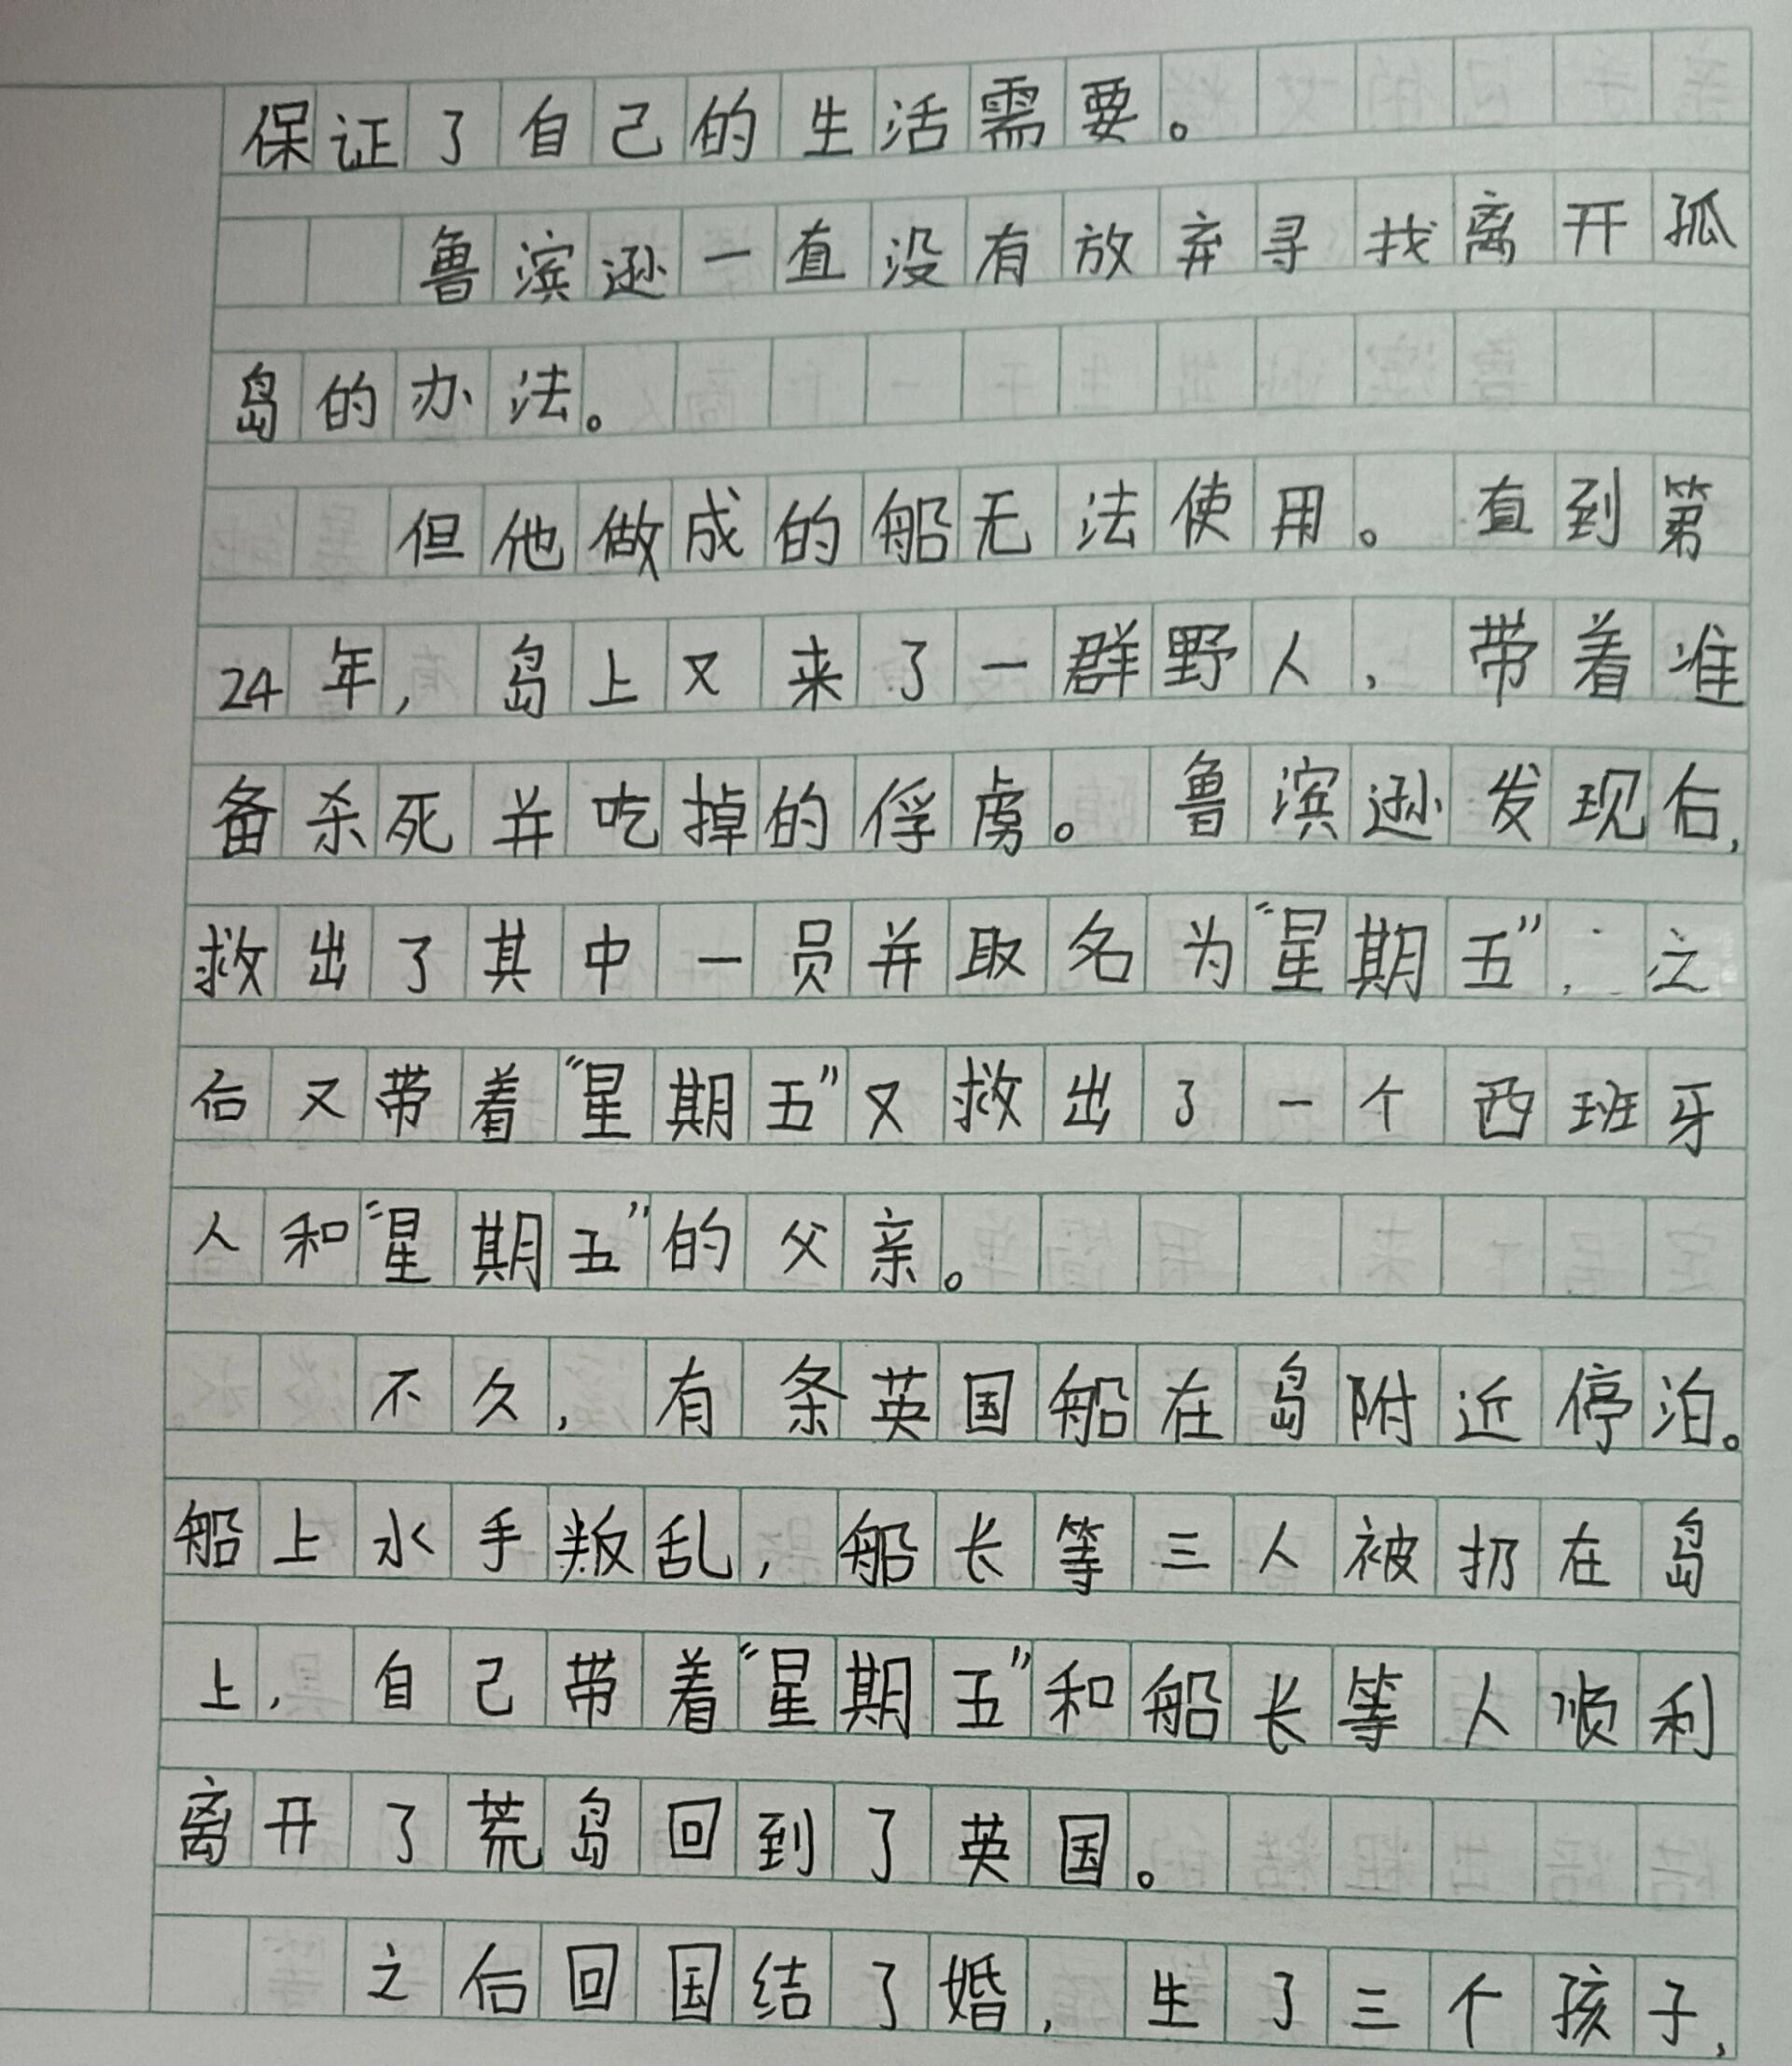 保证了自己的生活需要。
鲁滨逊一直没有放弃寻找离开孤
岛的办法。
但他做成的船无法使用。直到第
24年，岛上又来了一群野人，带着准
备杀死并吃掉的俘虏。鲁滨逊发现后，
救出了其中一员并取名为“星期五”，之
后又带着“星期五”又救出了一个西班牙
人和“星期五”的父亲。
不久，有条英国船在岛附近停泊。
船上水手叛乱，船长等三人被扔在岛
上，自己带着“星期五”和船长等人顺利
离开了荒岛回到了英国。
之后回国结了婚，生了三个孩子，